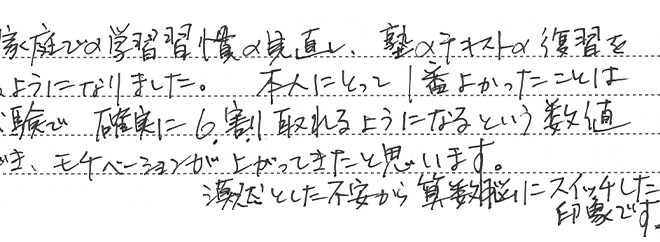 家庭での学習習慣の見直し、塾のテキストの復習を
ようになりました。 本人にとって1番よかったことは
験で 確実に6割取れるようになるという数値
き、モチベーションが上がってきたと思います。
漠然とした不安から算数脳にスイッチした
印象です。